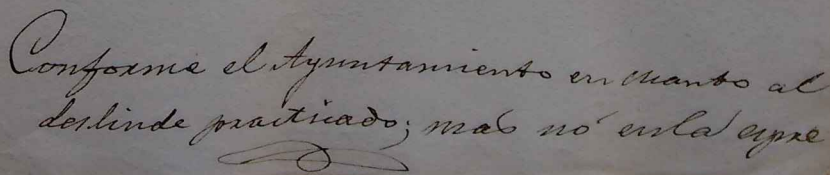 Conforme el Ayuntamiento en cuanto al
deslinde practicado; mas nó en lá espre